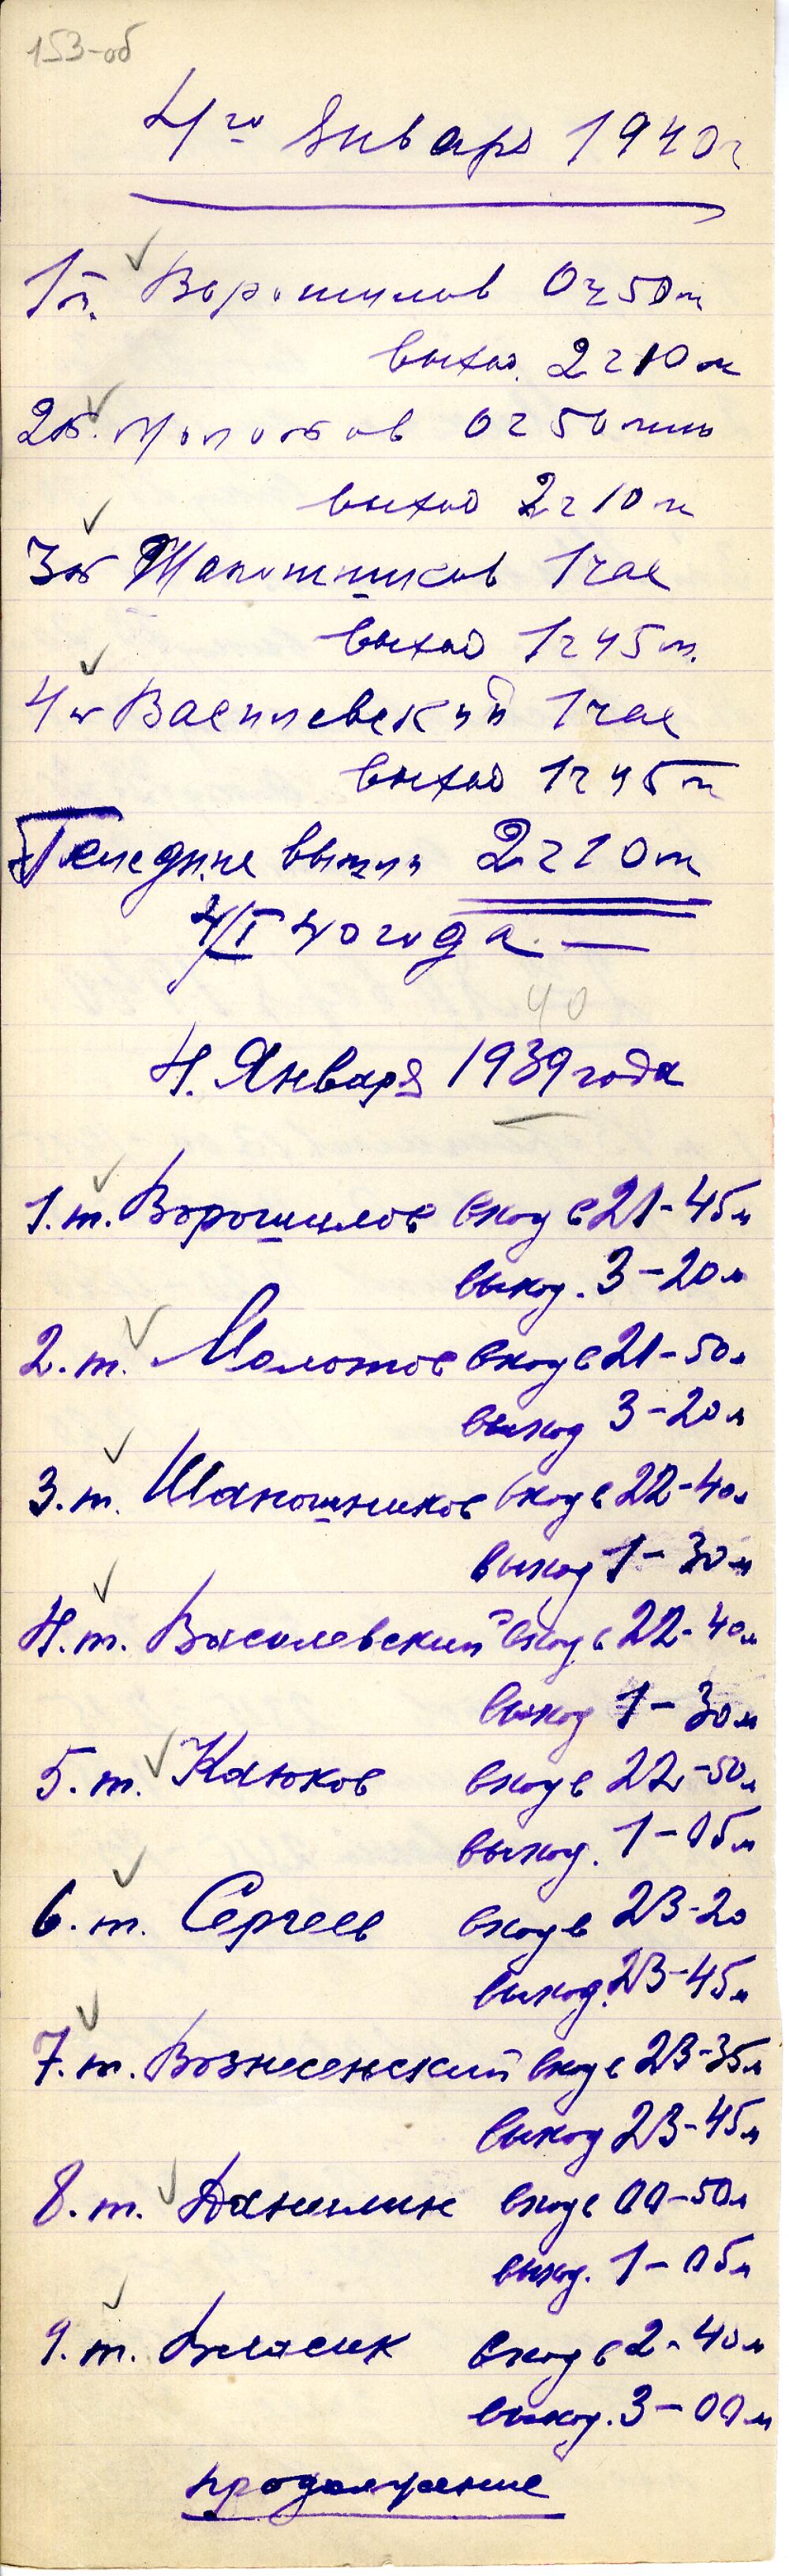 153-об
4го Января 1940г
1т. Ворошилов 0ч 50м
выход. 2ч 10м
2т. Молотов 0ч 50мин
выход 2ч 10м
3т Шапошников 1час
выход 1ч 45м.
4т Василевский 1час
выход 1ч 45м
Последние вышли 2ч 10м
4/I 40 года —
40
4. Января 1939 года
1. т. Ворошилов вход в 21-45м
выход. 3-20м
2. т. Молотов вход в 21-50м
выход 3-20м
3. т. Шапошников вход в 22-40м
выход 1-30м
4. т. Василевский вход в 22-40м
выход 1-30м
5. т. Клюков вход в 22-50м
выход. 1-05м
6. т. Сергеев вход в 23-20
выход. 23-45м
7. т. Вознесенский вход в 23-35м
выход 23-45м
8. т. Данилин вход в 00-50м
выход. 1-05м
9. т. Власик вход в 2-40м
выход. 3-00м
продолжение